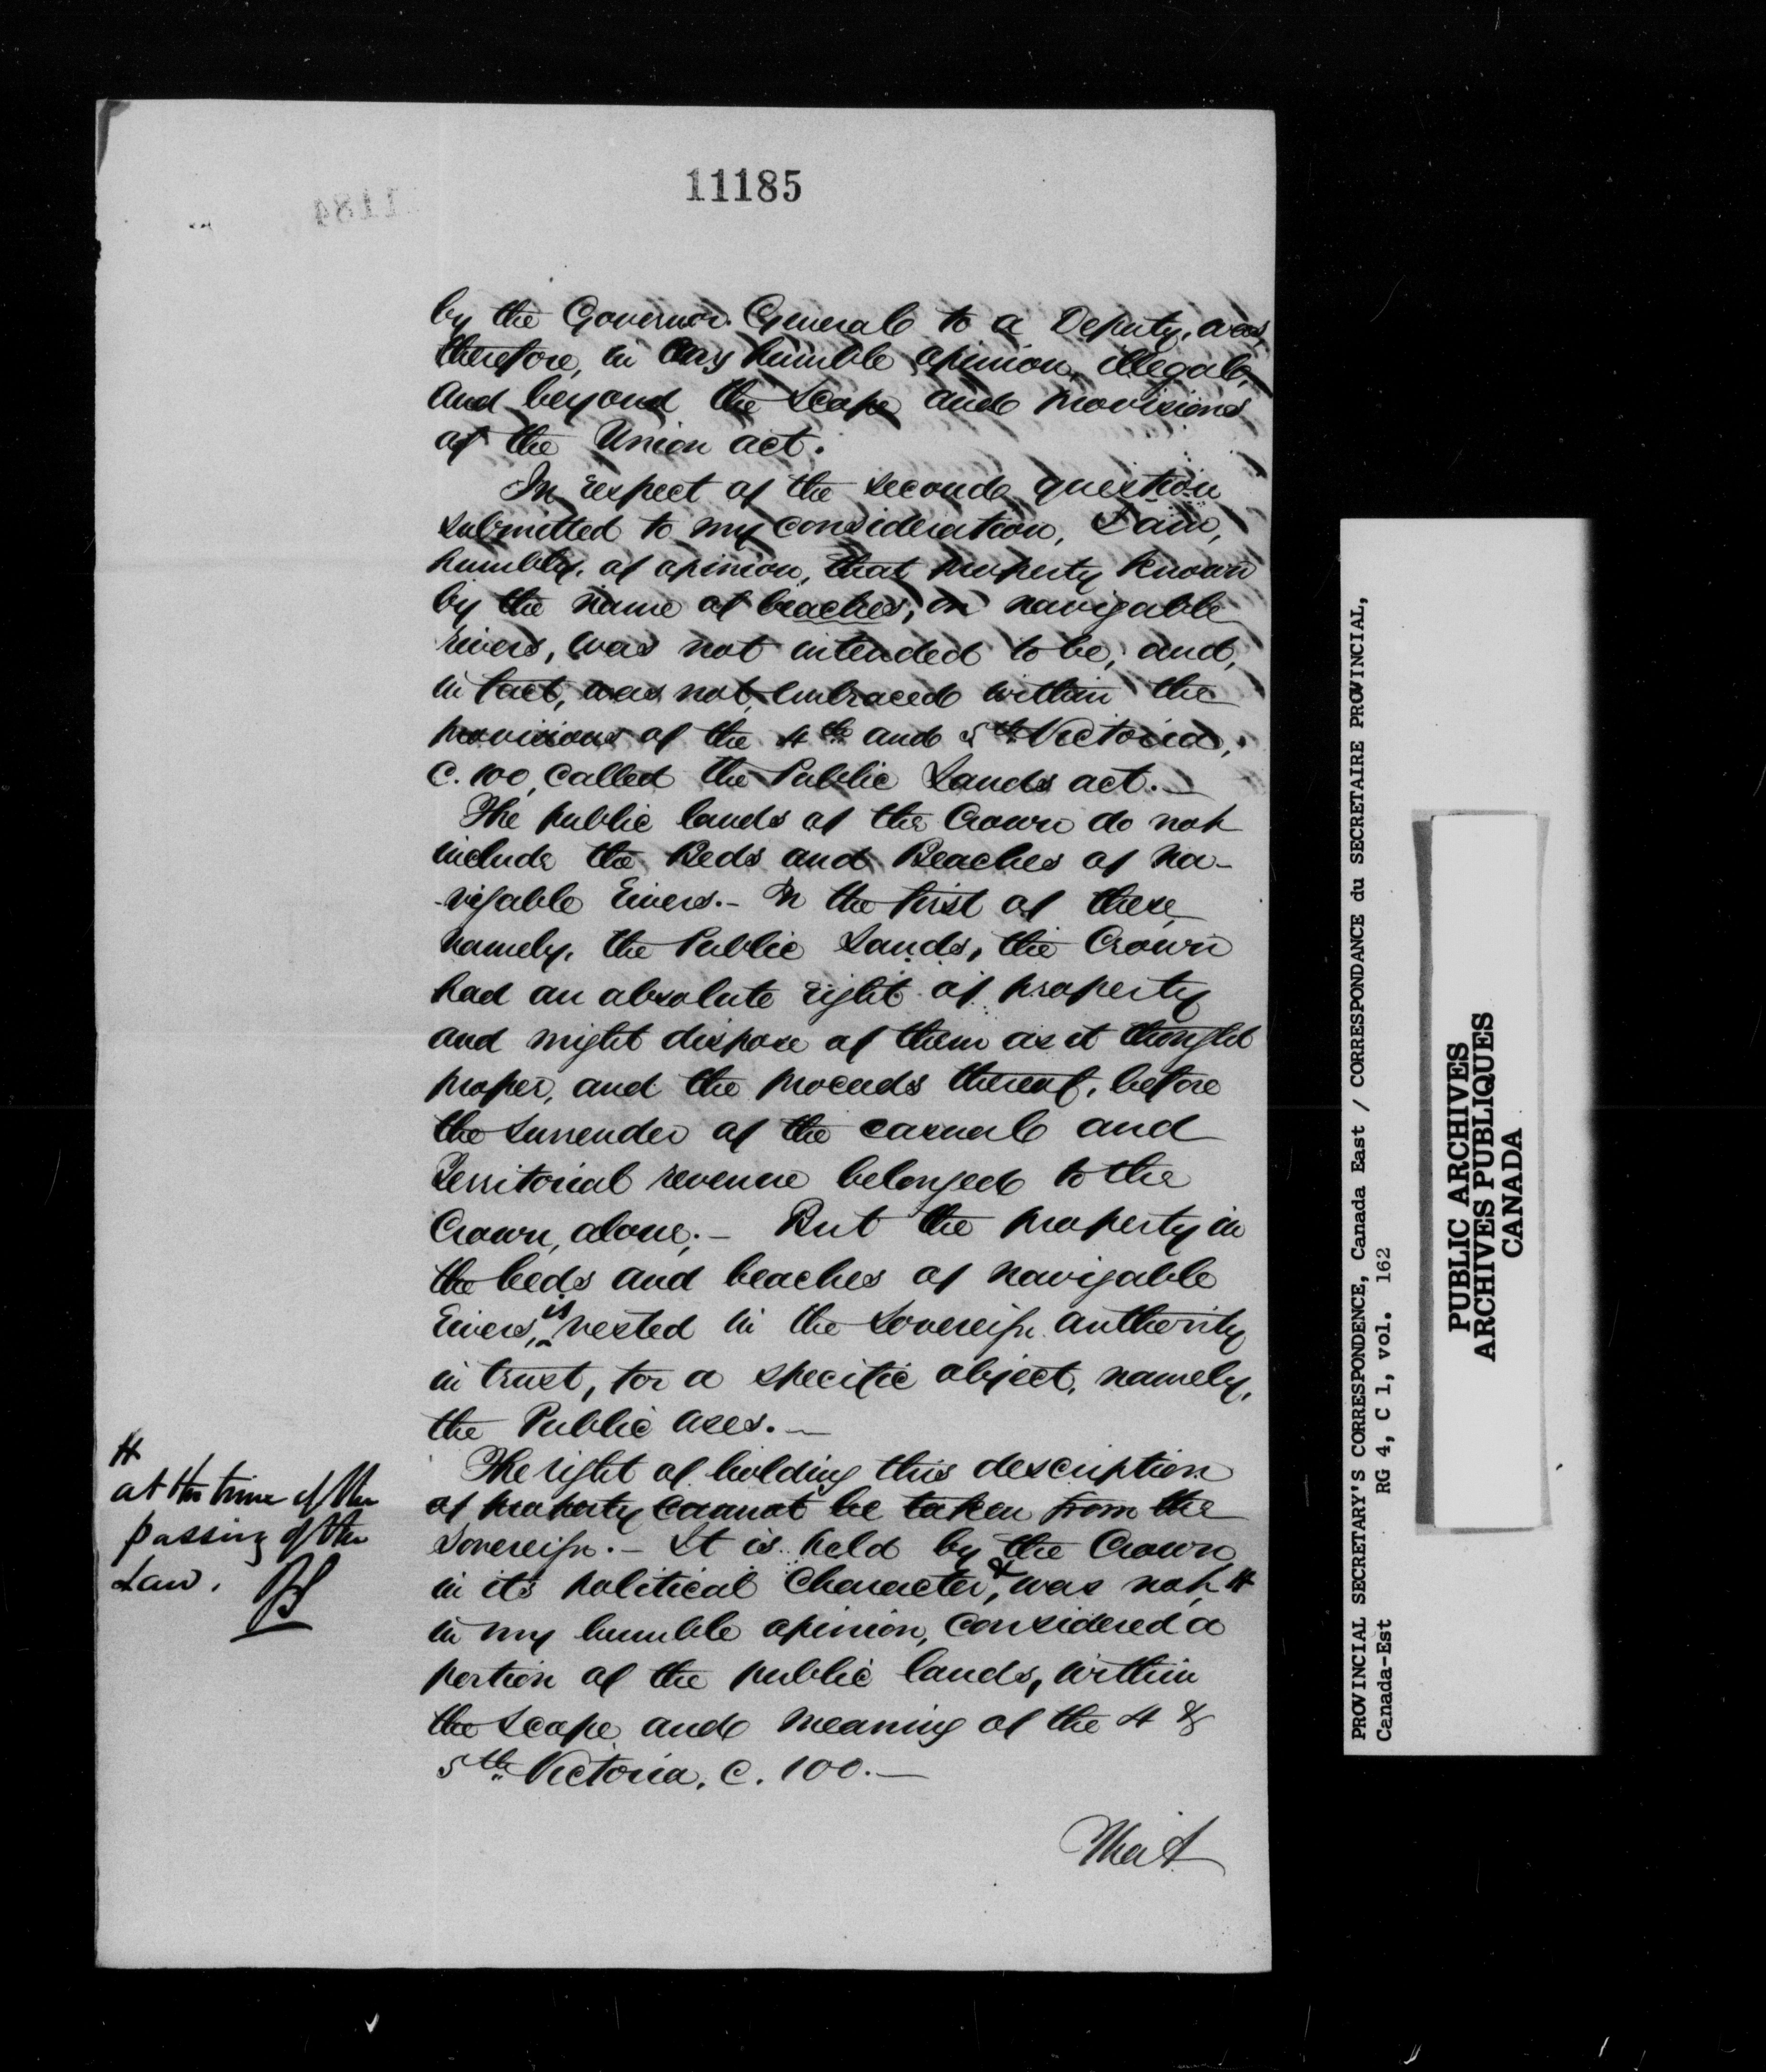 11185
by the Governor General to a Deputy, was,
therefore, in my humble opinion, illegal,
and beyond the scope and provisions
of the Union act.
In respect of the second question
submitted to my consideration, I am,
humbly, of opinion, that property known
by the name of beaches, on navigable
rivers, was not intended to be, and,
in fact, was not, embraced within the
provisions of the 4th and 5th Victoria,
C. 100, called the Public Lands act.—
The public lands of the Crown do not
include the Beds and Beaches of na-
-vigable Rivers.- In the first of these,
namely, the Public Lands, the Crown
had an absolute right of property
and might dispose of them as it thought
proper, and the proceeds thereof, before
the surrender of the casual and
Territorial revenue belonged to the
Crown, alone;- But the property in
the beds and beaches of navigable
Rivers, is vested in the Sovereign authority
in trust, for a specific object, namely,
the Public uses.—
The right of holding this description
of property cannot be taken from the
Sovereign.- It is held by the Crown
in its political Character, & was not, #
in my humble opinion, considered a
portion of the public lands, within
the scope and meaning of the 4 &
5th Victoria, C. 100.—
That
#
at the time of the
passing of the
Law.
PROVINCIAL SECRETARY'S CORRESPONDENCE, Canada East / CORRESPONDANCE du SECRETAIRE PROVINCIAL,
Canada-Est RG 4, C 1, vol. 162
PUBLIC ARCHIVES
ARCHIVES PUBLIQUES
CANADA